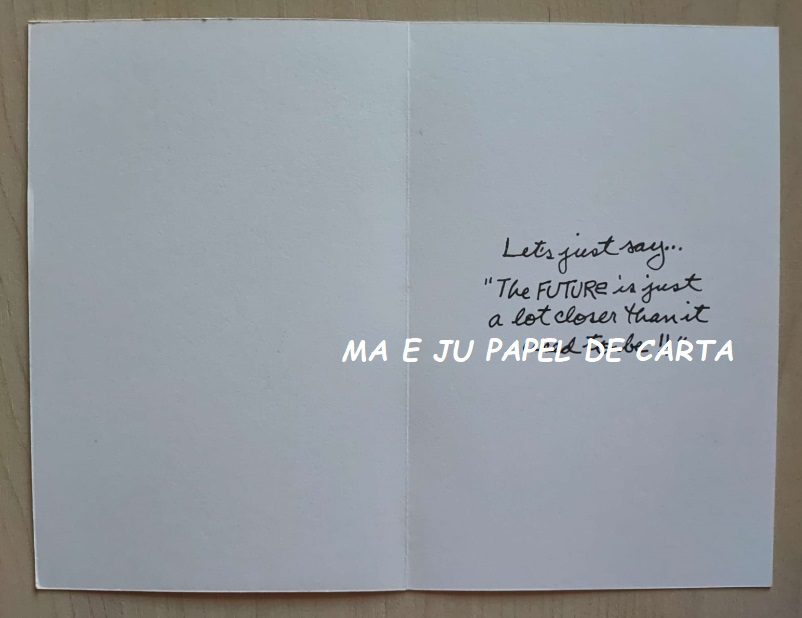 Let's just say...
"The FUTURE is just
a lot closer than it
used to be!!"
MA E JU PAPEL DE CARTA